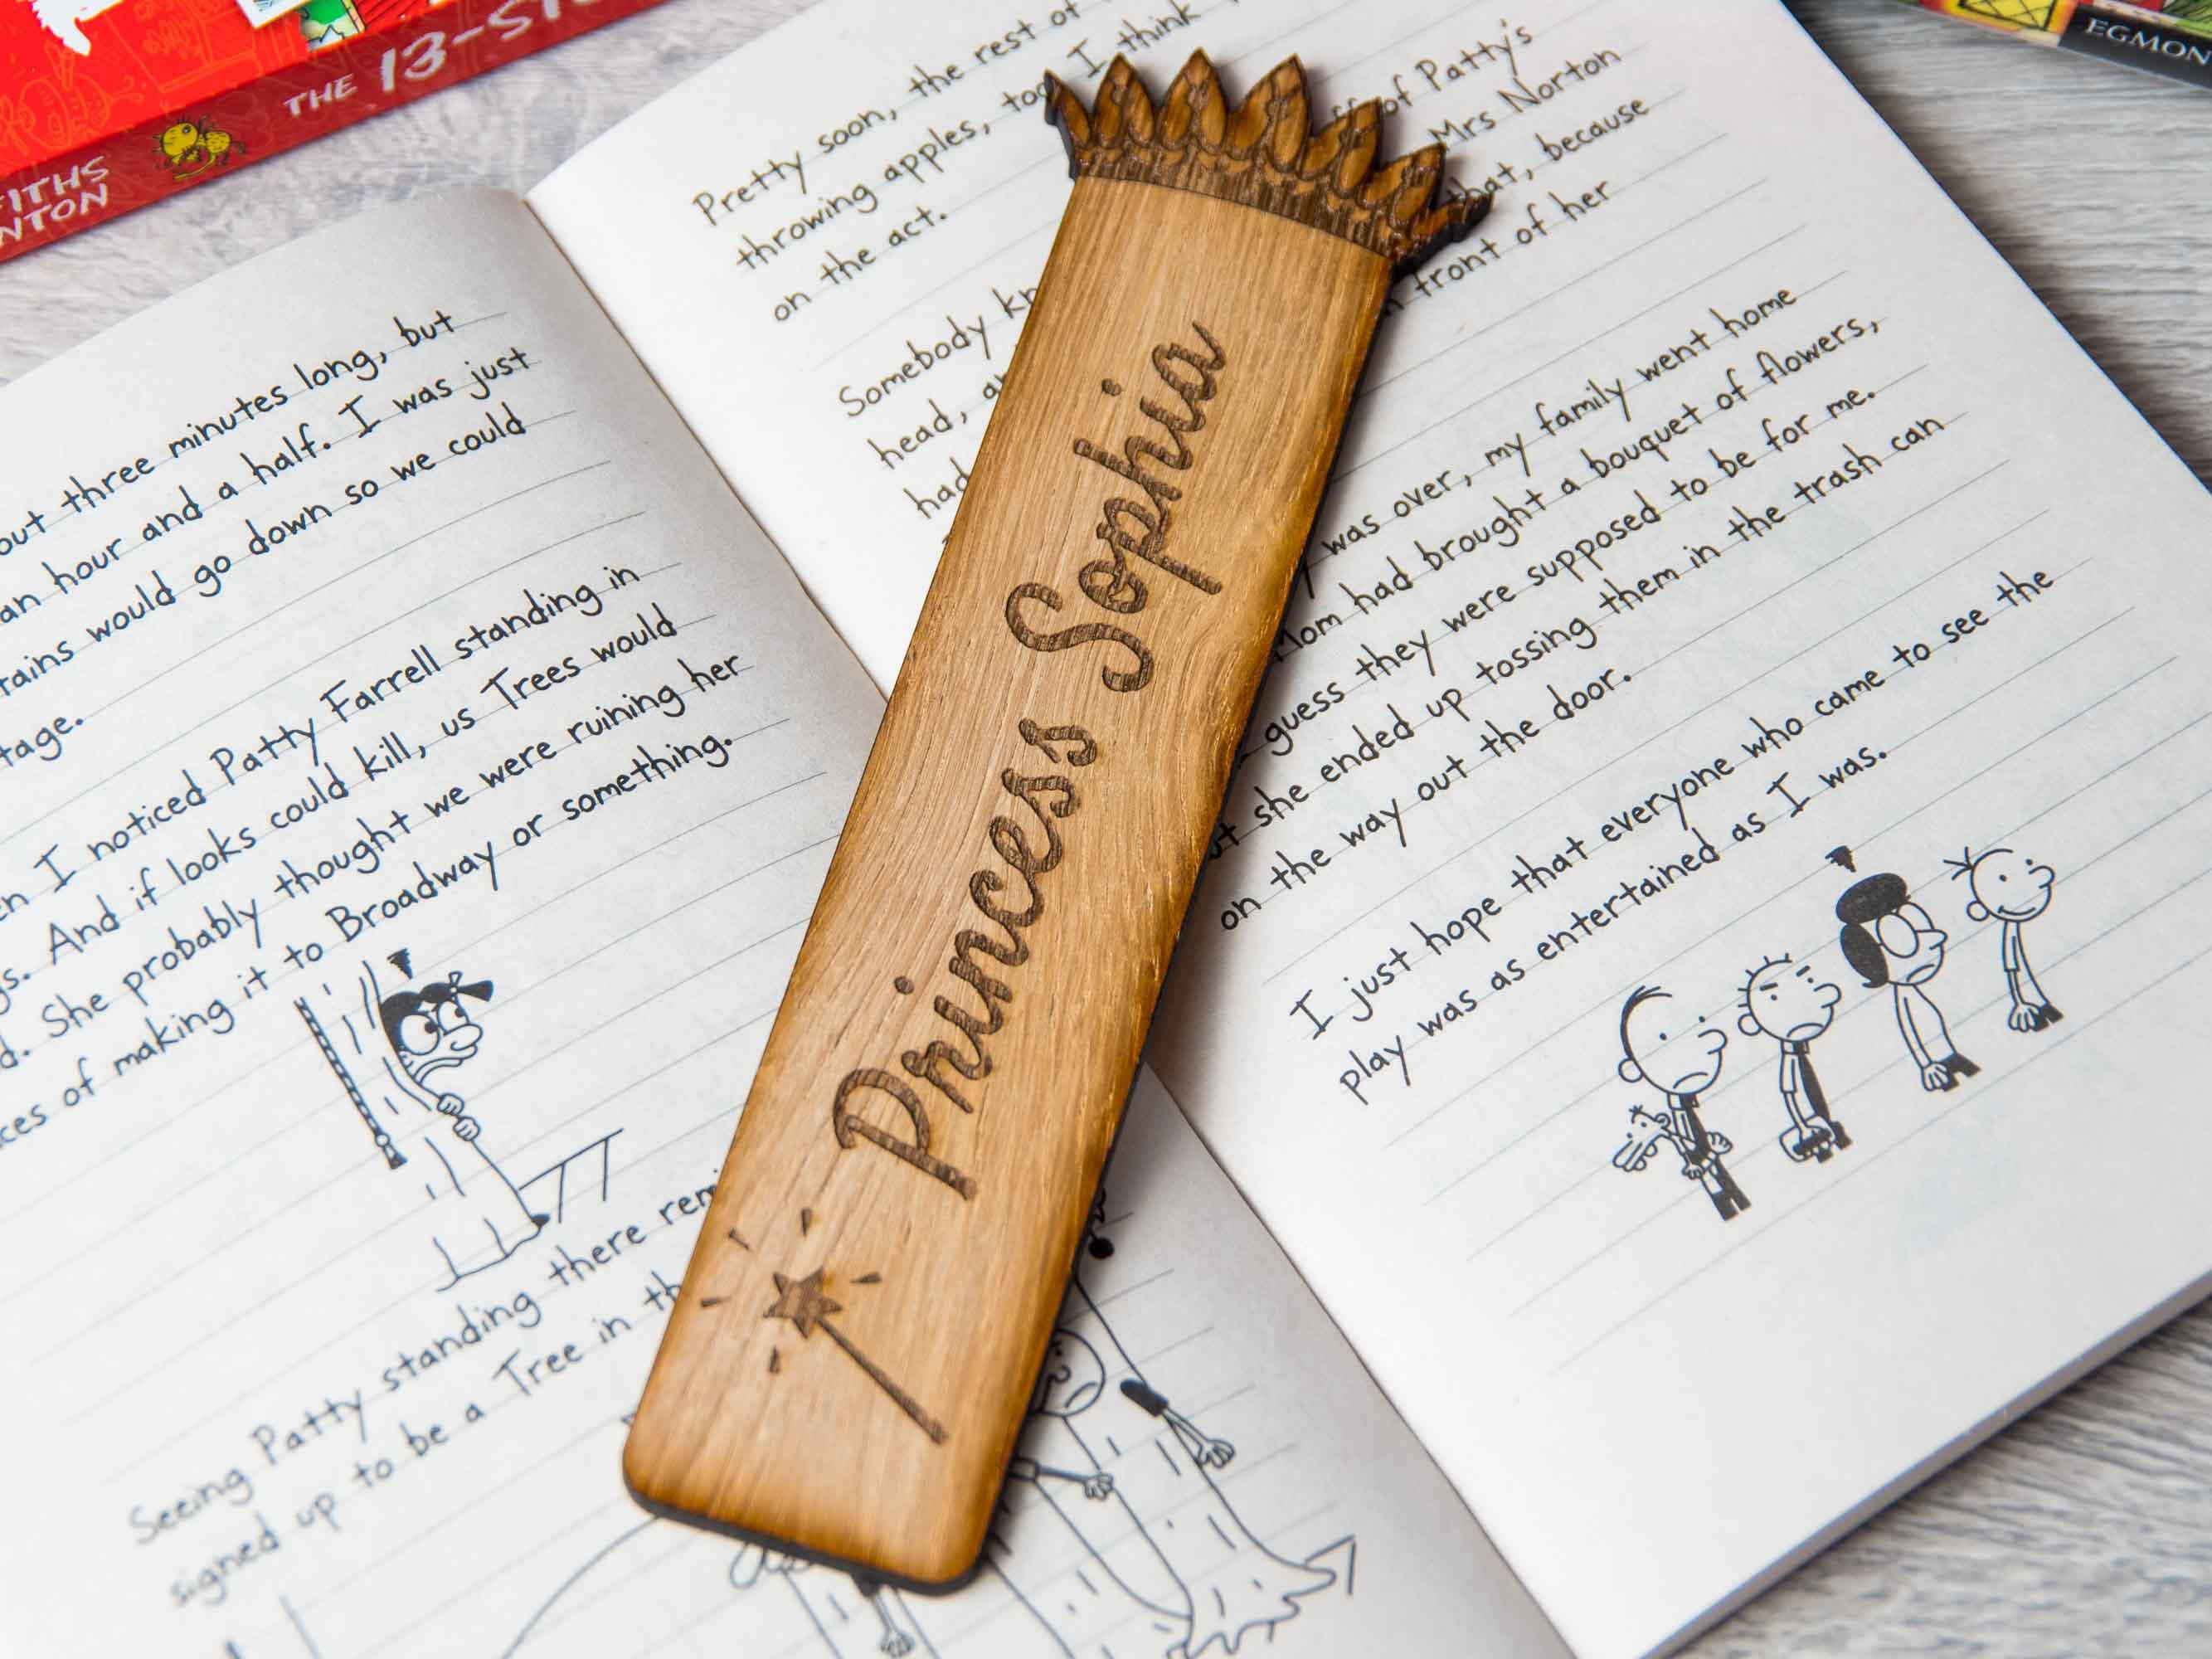 THE 13-ST
FITHS
NTON
EGMON
out three minutes long, but
an hour and a half. I was just
rains would go down so we could
tage.
en I noticed Patty Farrell standing in
gs. And if looks could kill, us Trees would
d. She probably thought we were ruining her
ces of making it to Broadway or something.
Seeing Patty standing there remi
signed up to be a Tree in th
Pretty soon, the rest of
throwing apples, too. I think
on the act.
Somebody kn ff of Patty's
head, a Mrs Norton
had that, because
n front of her
was over, my family went home
Mom had brought a bouquet of flowers,
guess they were supposed to be for me.
ut she ended up tossing them in the trash can
on the way out the door.
I just hope that everyone who came to see the
play was as entertained as I was.
Princess Sophia